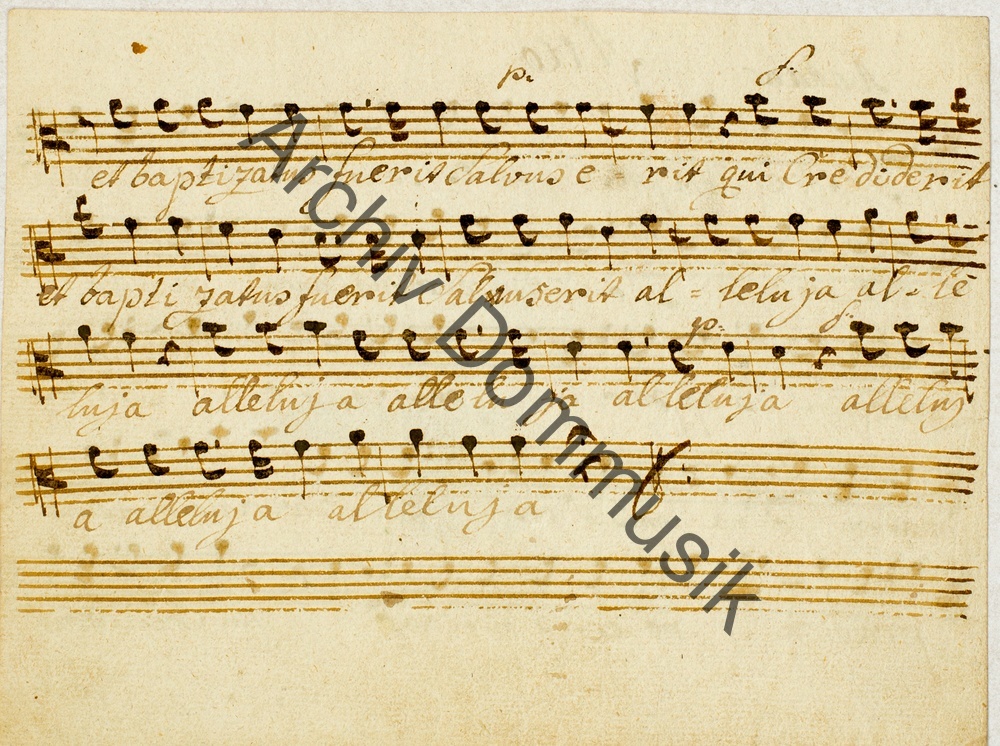 p. f.
et baptizatus fuerit Salvus e - rit qui Crediderit
et baptizatus fuerit Salvus erit al = leluja al = le
p.
luja alleluja alleluja alleluja alleluj
a alleluja alleluja
Archiv Dommusik